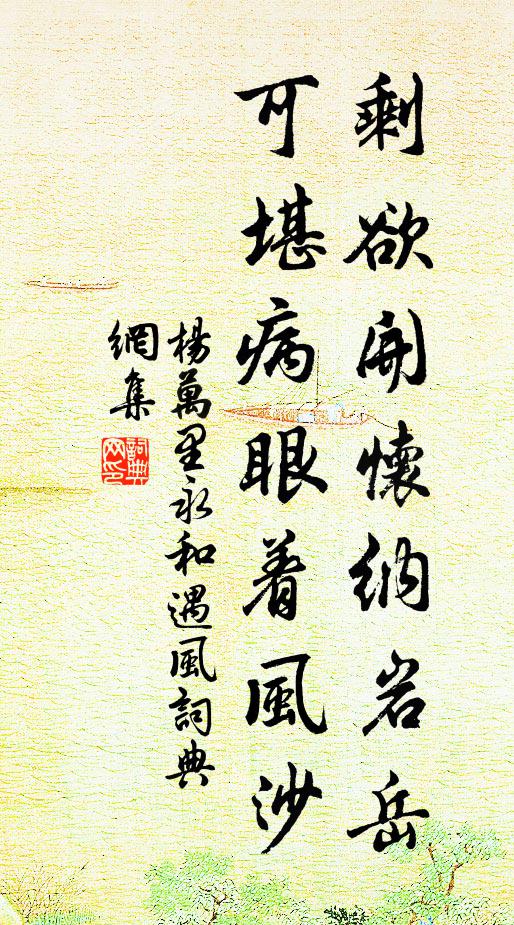 剩欲開懷納岩岳
可堪病眼着風沙
楊萬里永和遇風詞典
網集
詞典
网印